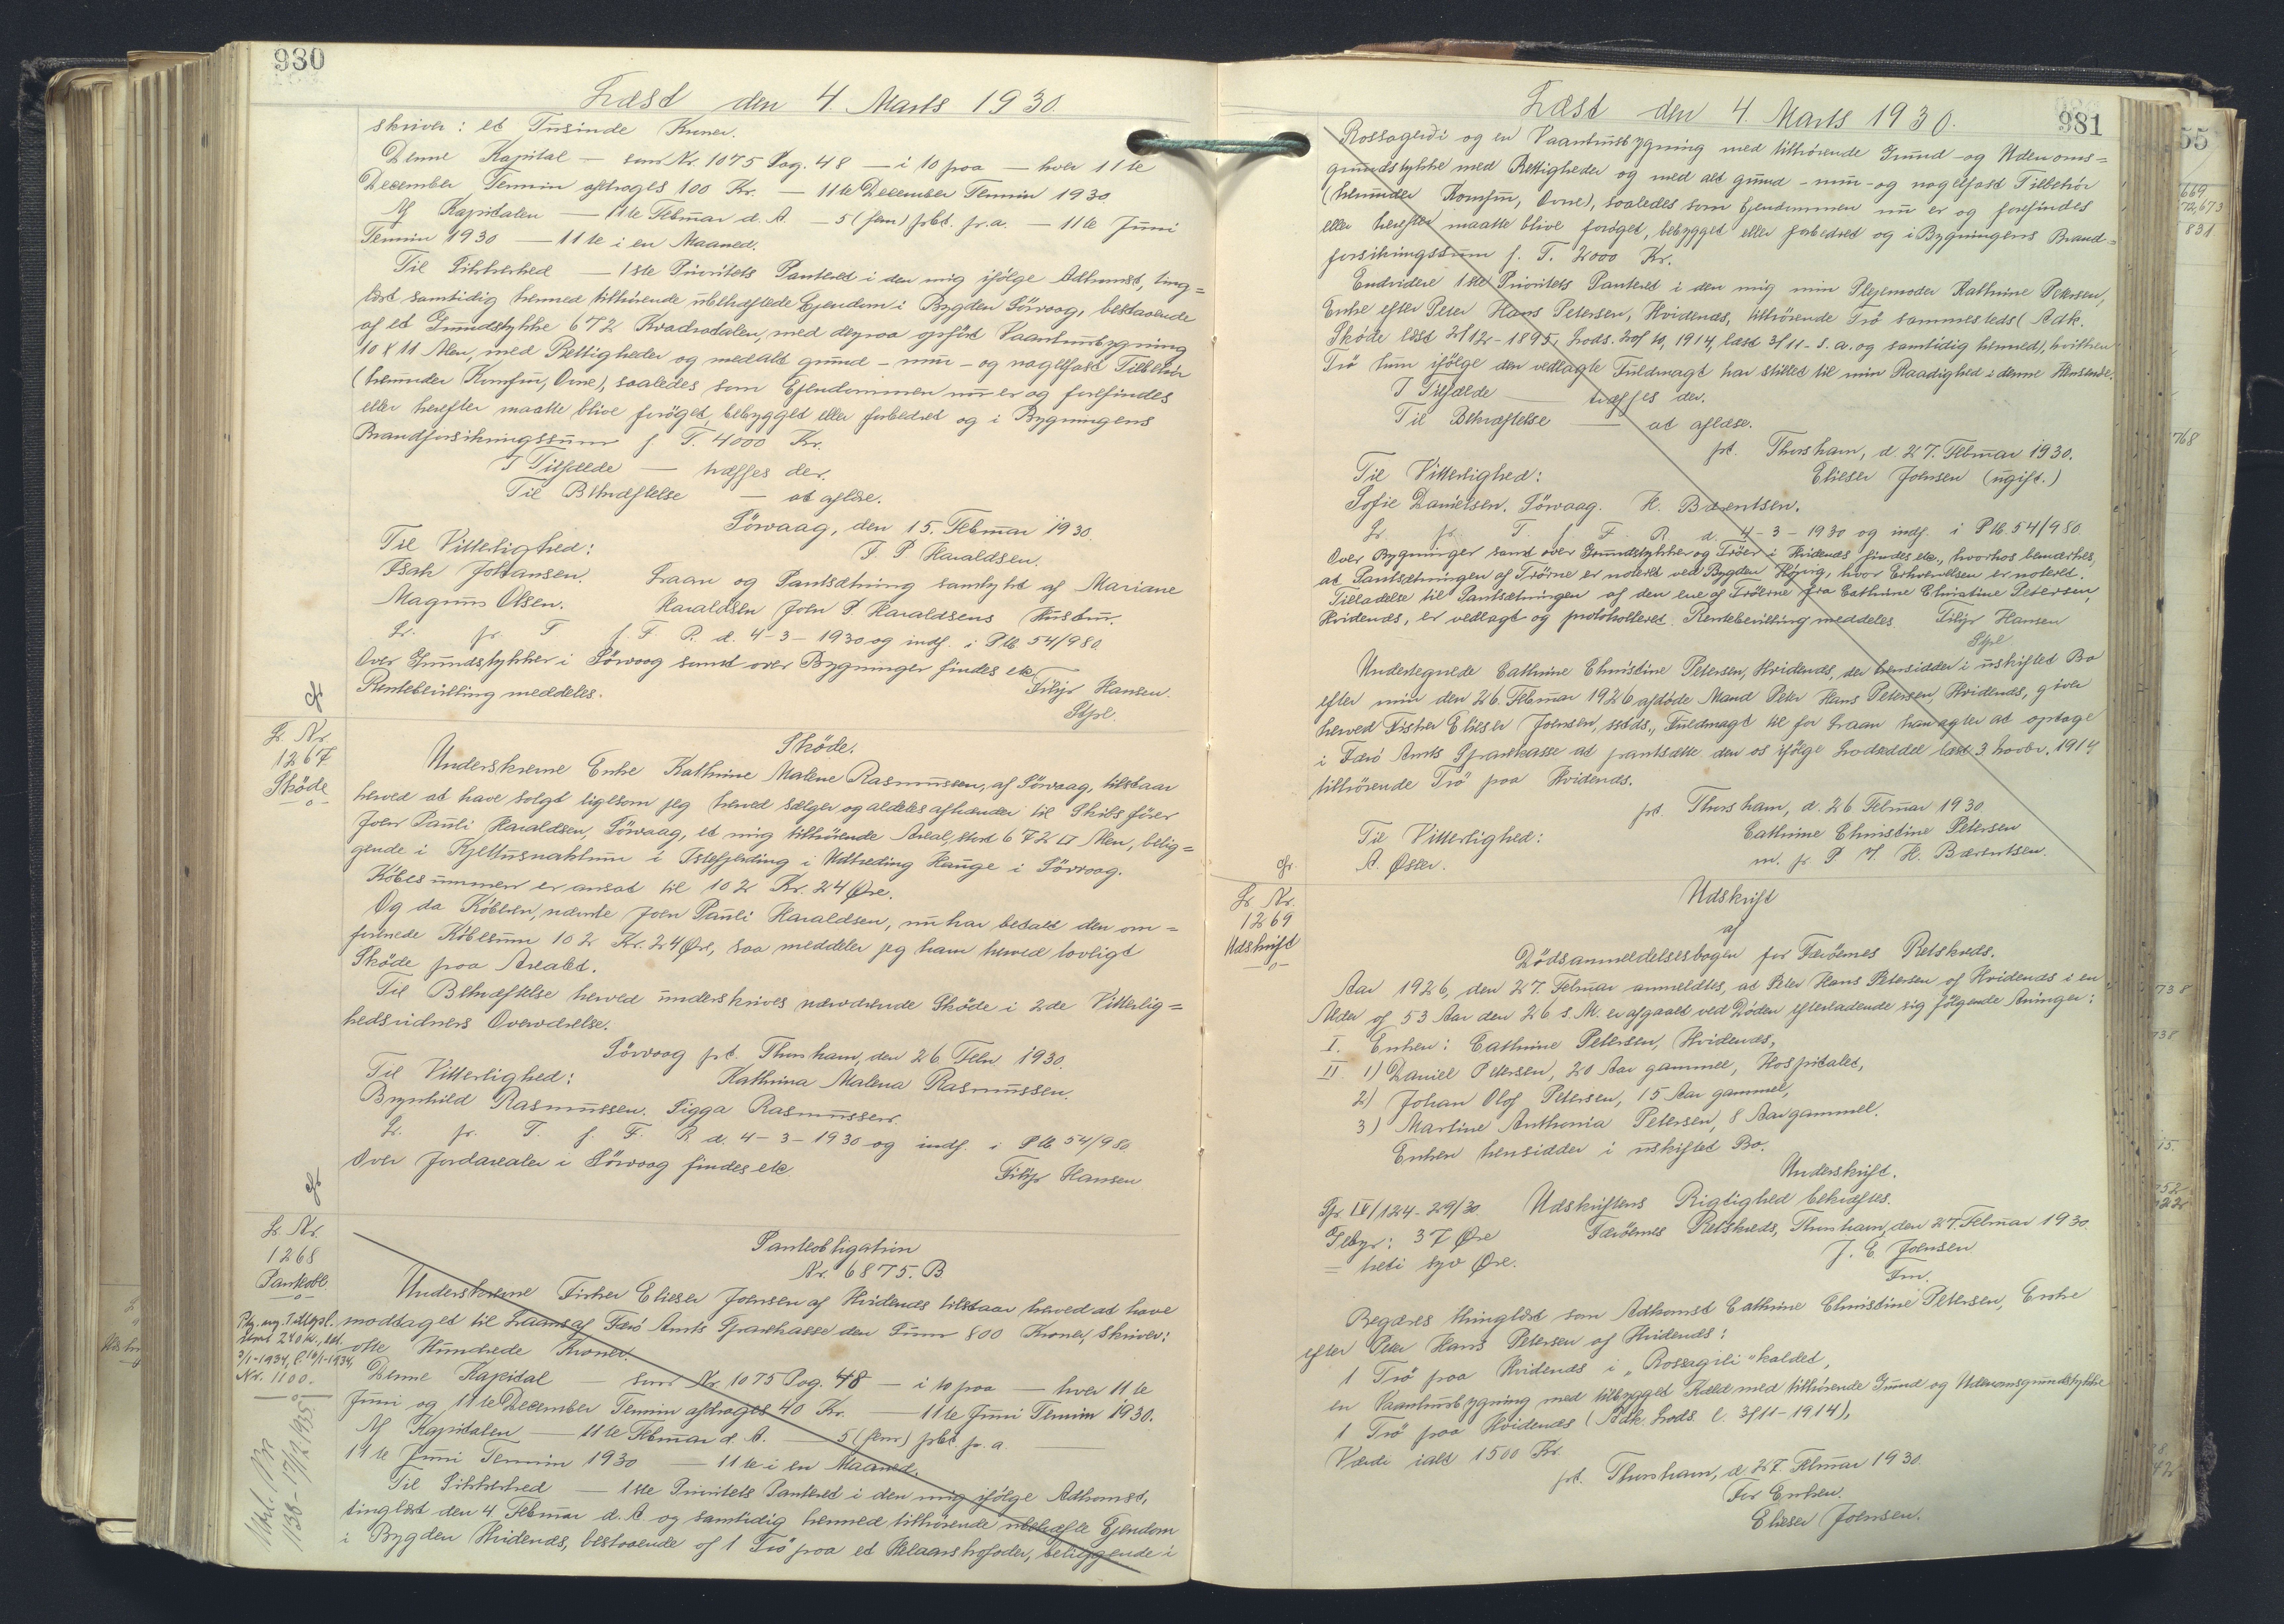 930
Læst den 4 Marts 1930.
skriver: et Tusinde Kroner.
Denne Kapital — som Nr. 1075 Pag. 48 — i to paa — hver 11te
December Termin afdrages 100 Kr. — 11te December Termin 1930
Af Kapitalen — 11te Februar d. A. — 5 (fem) pCt. p. a. — 11te Juni
Termin 1930 — 11te i en Maaned.
Til Sikkerhed — 1ste Prioritets Panteret i den mig ifölge Adkomst, ting=
læst samtidig hermed tilhörende ubehæftede Ejendom i Bygden Sörvaag, bestaaende
af et Grundstykke 672 Kvadratalen, med derpaa opfört Vaanhusbygning
10 X 11 Alen, med Rettigheder og med alt grund- mur- og nagelfast Tilbehör
(herunder Komfur, Ovne), saaledes som Ejendommen nu er og forefindes
eller herefter maatte blive foröget, bebygget eller forbedret og i Bygningens
Brandforsikringssum f. T. 4000 Kr.
I Tilfælde — træffes der.
Til Bekræftelse — at aflæse.
Sörvaag, den 15. Februar 1930.
Til Vitterlighed: J. P. Haraldsen.
Isak Johansen. Laan og Pantsætning samtykt af Mariane
Magnus Olsen. Haraldsen Joen P Haraldsens Hustru.
L. pr. T f. F. R. d. 4-3-1930 og indf. i Ptb 54/980.
Over Grundstykker i Sörvaag samt over Bygninger findes etc.
Rentebevilling meddeles. Filip Hansen.
Stpl.
L. Nr.
1267
Sköde
Sköde.
Underskrevne Enke Kathrine Malene Rasmussen, af Sörvaag, tilstaar
herved at have solgt ligesom jeg herved sælger og aldeles afhænder til Skibsförer
Joen Pauli Haraldsen, Sörvaag, et mig tilhörende Areal, stort 672 □ Alen, belig=
gende i Kjellusnaktum i Istefjerding i Udtreding Hauge i Sörvaag.
Köbesummen er ansat til 102 Kr. 24 Øre.
Og da Köberen, nævnte Joen Pauli Haraldsen, nu har betalt den om=
formede Köbesum 102 Kr. 24 Øre, saa meddeler jeg ham herved lovligt
Sköde paa Arealet.
Til Bekræftelse herved underskrives nærværende Sköde i 2de Vitterlig=
hedsvidners Overværelse.
Sörvaag pt. Thorshavn, den 26 Febr. 1930.
Til Vitterlighed: Kathrina Malena Rasmussen.
Brynhild Rasmussen. Sigga Rasmussen.
L. pr. T. f. F. R d. 4-3-1930 og indf. i Ptb 54/980.
Over Jordarealer i Sörvaag findes etc. Filip Hansen
L. Nr.
1268
Pantobl.
Nr. 1100.
1133-17/12 1935
Panteobligation
Nr. 6875. B
Underskrevne Fisker Elieser Joensen af Hvidenæs tilstaar herved at have
modtaget til Laans af Færö Amts Sparekasse den Sum 800 Kroner, skriver:
otte Hundrede Kroner.
Denne Kapital — som Nr. 1075 Pag. 48 — i to paa — hver 11te
Juni og 11te December Termin afdrages 40 Kr. — 11te Juni Termin 1930.
Af Kapitalen — 11te Februar d. A. — 5 (fem) pCt. p. a.
11te Juni Termin 1930 — 11te i en Maaned.
Til Sikkerhed — 1ste Prioritets Panteret i den mig ifölge Adkomst,
tinglæst den 4 Februar d. A. og samtidig hermed tilhörende ubehæftede Ejendom
i Bygden Hvidenæs, bestaaende af 1 Trö paa et Helaarskofoder, beliggende i
981
Læst den 4 Marts 1930.
Rossagerdi og en Vaanhusbygning med tilhörende Grund- og Udenoms=
grundstykke med Rettigheder og med alt grund- mur- og nagelfast Tilbehör
(herunder Komfur, Ovne), saaledes som Ejendommen nu er og forefindes
eller herefter maatte blive foröget, bebygget eller forbedret og i Bygningens Brand=
forsikringssum f. T. 2000 Kr.
Endvidere 1ste Prioritets Panteret i den mig min Plejemoder Kathrine Petersen,
Enke efter Peter Hans Petersen, Hvidenæs, tilhörende Trö sammesteds (Adk.
Sköde læst 2/12-1895, Lods. Hof to, 1914, læst 3/11- s. a. og samtidig hermed), hvilken
Trö hun ifölge den vedlagte Fuldmagt har stillet til min Raadighed i denne Henseende.
I Tilfælde — træffes der.
Til Bekræftelse — at aflæse.
pt. Thorshavn, d. 27. Februar 1930.
Til Vitterlighed: Elieser Joensen (ugift.)
Sofie Danielsen, Sörvaag. H. Bærentsen.
L. pr. T. f. F. R. d. 4-3-1930 og indf. i Ptb. 54/980.
Over Bygninger samt over Grundstykker og Tröer i Hvidenæs findes etc., hvorhos bemærkes,
at Pantsætningen af Tröerne er noteret ved Bygden Höjvig, hvor Erhvervelsen er noteret.
Tilladelse til Pantsætningen af den ene af Tröerne fra Cathrine Christine Petersen,
Hvidenæs, er vedlagt og protokolleret. Rentebevilling meddeles. Filip Hansen
Stpl
Undertegnede Cathrine Christine Petersen, Hvidenæs, der hensidder i uskiftet Bo
efter min den 26. Februar 1926 afdöde Mand Peter Hans Petersen, Hvidenæs, giver
herved Fisker Elieser Joensen, sstds., Fuldmagt til for Laan han agter at optage
i Færö Amts Sparekasse at pantsætte den os ifölge Lodseddel læst 3 Novbr. 1914
tilhörende Trö paa Hvidenæs.
pt. Thorshavn, d. 26 Februar 1930.
Til Vitterlighed: Cathrine Christine Petersen
A. Øster. m. p. P H. H. Bærentsen.
L. Nr.
1269
Udskrift
Udskrift
af
Dödsanmeldelsesbogen for Færöernes Retskreds.
Aar 1926, den 27. Februar anmeldtes, at Peter Hans Petersen af Hvidenæs i en
Alder af 53 Aar den 26 s. M. er afgaaet ved Döden efterladende sig fölgende Arvinger:
I. Enken: Cathrine Petersen, Hvidenæs,
II 1) Daniel Petersen, 20 Aar gammel, Hospitalet,
2) Johan Olof Petersen, 15 Aar gammel,
3) Martine Anthonia Petersen, 8 Aar gammel.
Enken hensidder i uskiftet Bo.
Underskrift.
Gr. IV/124-29/30. Udskriftens Rigtighed bekræftes.
Gebyr: 37 Øre Færöernes Retskreds, Thorshavn, den 27. Februar 1930.
= treti syv Øre. J. E. Joensen
Fm.
Begæres thinglæst som Adkomst Cathrine Christine Petersen, Enke
efter Peter Hans Petersen af Hvidenæs:
1 Trö paa Hvidenæs i „Rossagili“ kaldet,
en Vaanhusbygning med tilbygget Kæld med tilhörende Grund og Udenomsgrundstykke
1 Trö paa Hvidenæs (Adk. Lods. l. 3/11-1914),
Værdi ialt 1500 Kr.
pt. Thorshavn, d. 27. Februar 1930.
For Enken.
Elieser Joensen.